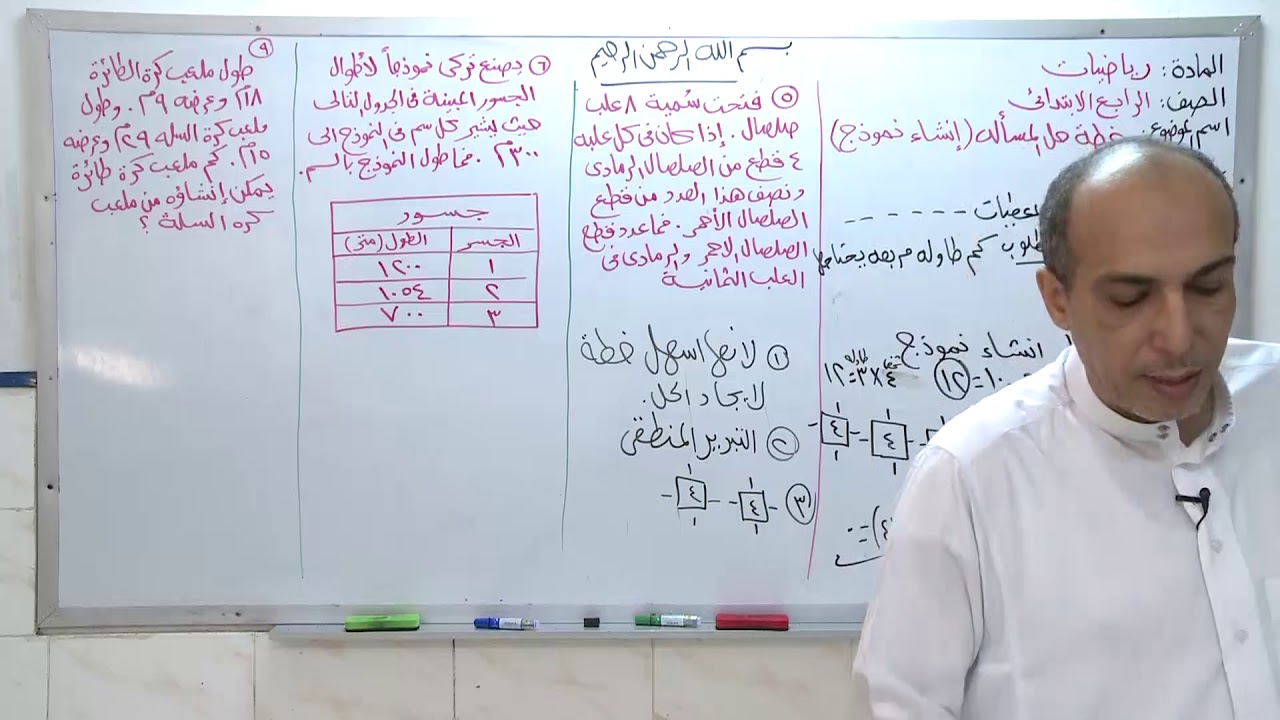 بسم الله الرحمن الرحيم
المادة: رياضيات
الصف: الرابع الابتدائي
اسم الموضوع: خطة حل المسأله (إنشاء نموذج)
كم طاوله مربعه يحتاجها
انشاء نموذج
٤ × ٣ = ١٢
١٠ = ١٢
٤
٤
٥ فتحت سُمية ٨ علب
صلصال. إذا كان في كل علبه
٤ قطع من الصلصال الرمادي
و نصف هذا العدد من قطع
الصلصال الأحمر. فما عدد قطع
الصلصال الاحمر والرمادي في
العلب الثمانية
١ لانها اسهل خطة
لايجاد الحل.
٢ التبرير المنطقي
٣
٤
٤
٦ يصنع تركي نموذجاً لأطوال
الجسور المبينة في الجدول التالي
حيث يشير كل سم في النموذج الى
٣٠٠م. فما طول النموذج بالسم.
جسور
الجسر الطول (متر)
١ ١٢٠٠
٢ ١٠٥٤
٣ ٧٠٠
٩
طول ملعب كرة الطائرة
١٨م وعرضه ٩م. وطول
ملعب كرة السله ٢٩م وعرضه
١٥م. كم ملعب كرة طائرة
يمكن إنشاؤه من ملعب
كره السلة؟